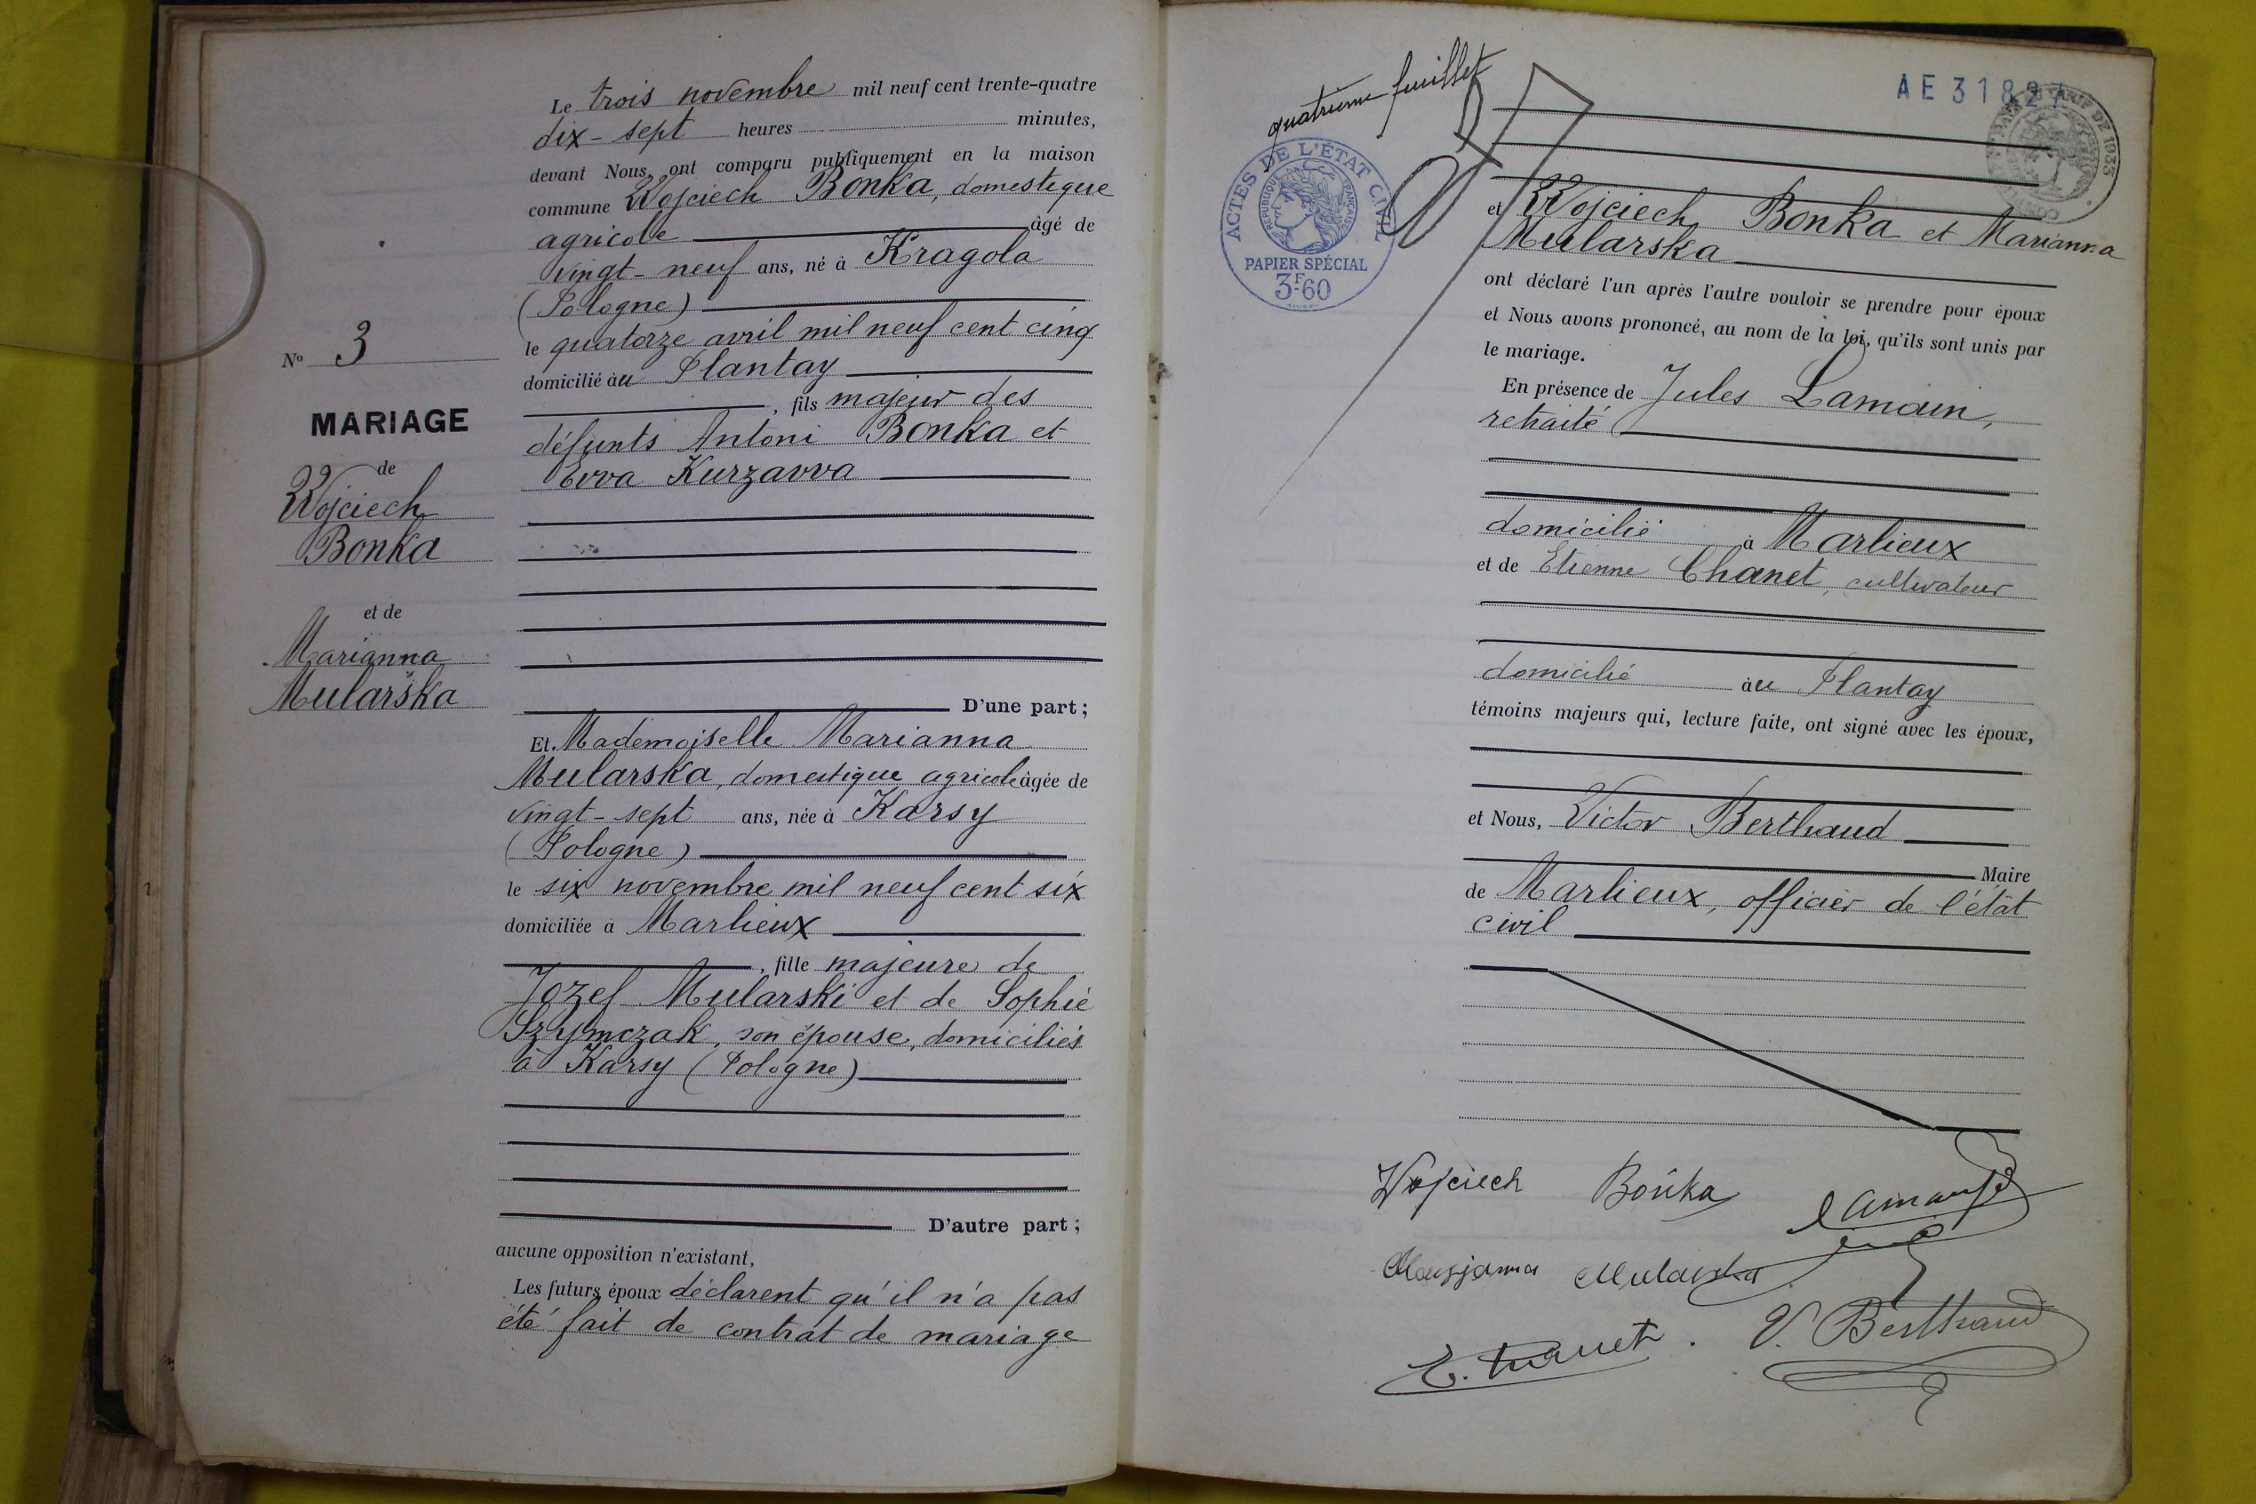 Le trois novembre mil neuf cent trente-quatre
dix-sept heures minutes,
devant Nous, ont comparu publiquement en la maison
commune Wojciech Bonka, domestique
agricole âgé de
vingt-neuf ans, né à Kragola
(Pologne)
le quatorze avril mil neuf cent cinq
domicilié au Plantay
, fils majeur des
défunts Antoni Bonka et
Ewa Kurzawa
D'une part ;
Nº 3
MARIAGE
de
Wojciech
Bonka
et de
Marianna
Mularska
Et Mademoiselle Marianna
Mularska, domestique agricole âgée de
vingt-sept ans, née à Karsy
(Pologne)
le six novembre mil neuf cent six
domiciliée à Marlieux
, fille majeure de
Jozef Mularski et de Sophie
Szymczak, son épouse, domiciliés
à Karsy (Pologne)
D'autre part ;
aucune opposition n'existant,
Les futurs époux déclarent qu'il n'a pas
été fait de contrat de mariage
quatrième feuillet
AE 31827
ACTES DE L'ÉTAT CIVIL
RÉPUBLIQUE FRANÇAISE
PAPIER SPÉCIAL
3F.60
TARIF DE 1933
et Wojciech Bonka et Marianna
Mularska
ont déclaré l'un après l'autre vouloir se prendre pour époux
et Nous avons prononcé, au nom de la loi, qu'ils sont unis par
le mariage.
En présence de Jules Lamain,
retraité
domicilié à Marlieux
et de Etienne Chanet, cultivateur
domicilié au Plantay
témoins majeurs qui, lecture faite, ont signé avec les époux,
et Nous, Victor Berthaud
Maire
de Marlieux, officier de l'état
civil
Wojciech Bońka
Marjanna Mularska
V. Berthaud